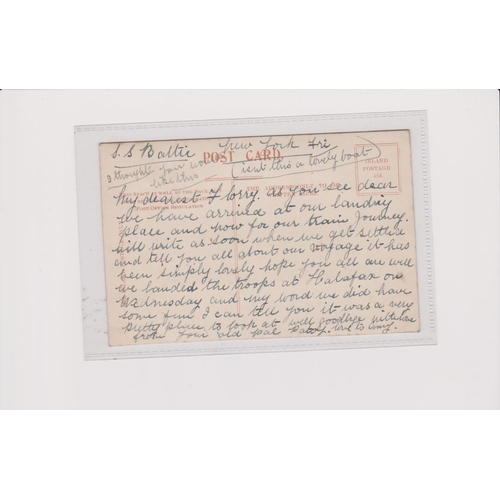 S.S Baltic New York Fri
I thought you would like this
(isnt this a lovely boat)
POST CARD
INLAND
POSTAGE
My dearest Florry. as you see dear
we have arrived at our landing
place and now for our train Journey.
will write as soon when we get settled
and tell you all about our voyage it has
been simply lovely hope you all are well
we landed the troops at Halafax on
Wednesday and my word we did have
some fun I can tell you it was a very
pretty place to look at well goodbye with love
from your old pal